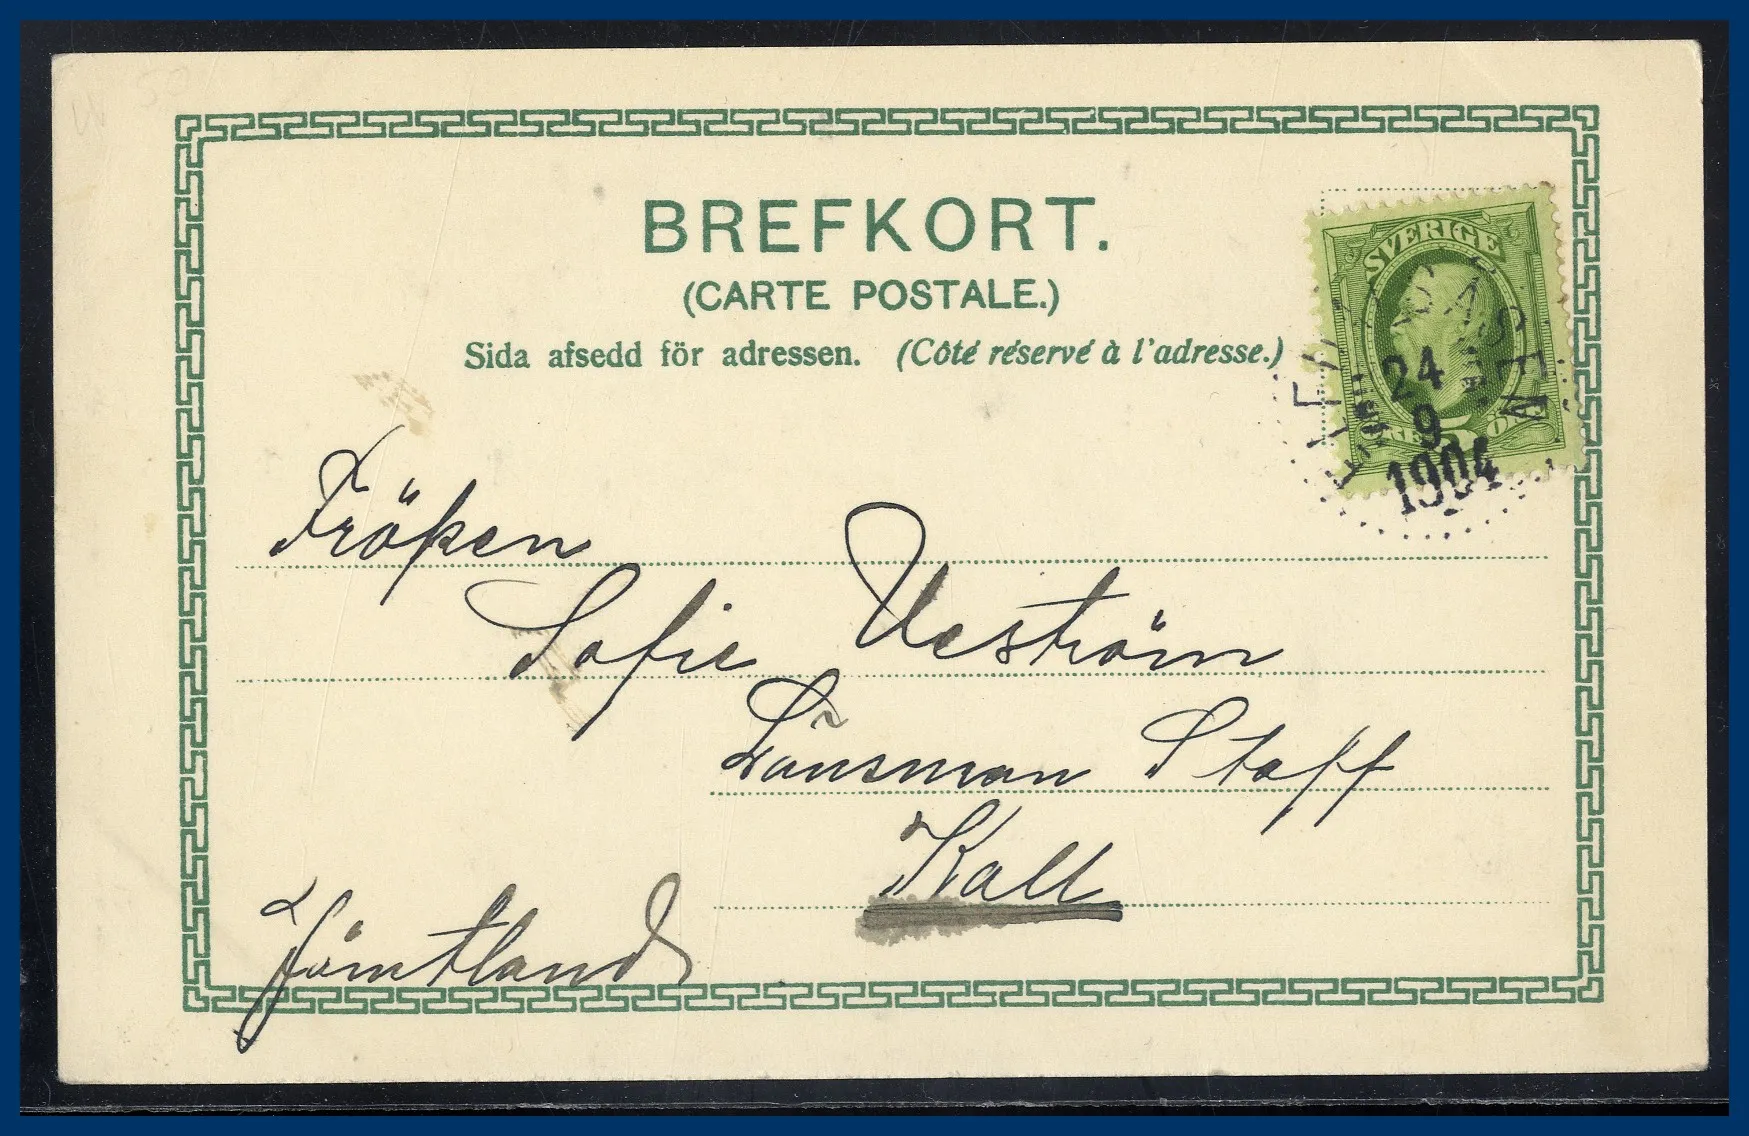 BREFKORT.
(CARTE POSTALE.)
Sida afsedd för adressen. (Côté réservé à l'adresse.)
SVERIGE
24
9
1904
Fröken
Sofie Veström
Länsman Staff
Kall
Jämtland